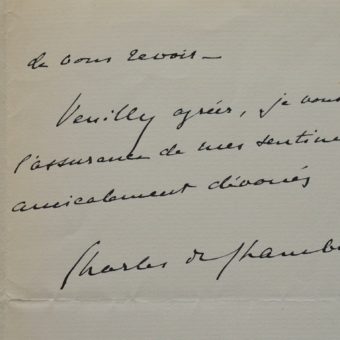 de vous revoir —
Veuilly agréer, je vous
l'assurance de mes sentime
amicalement dévoués
Charles de Chamb